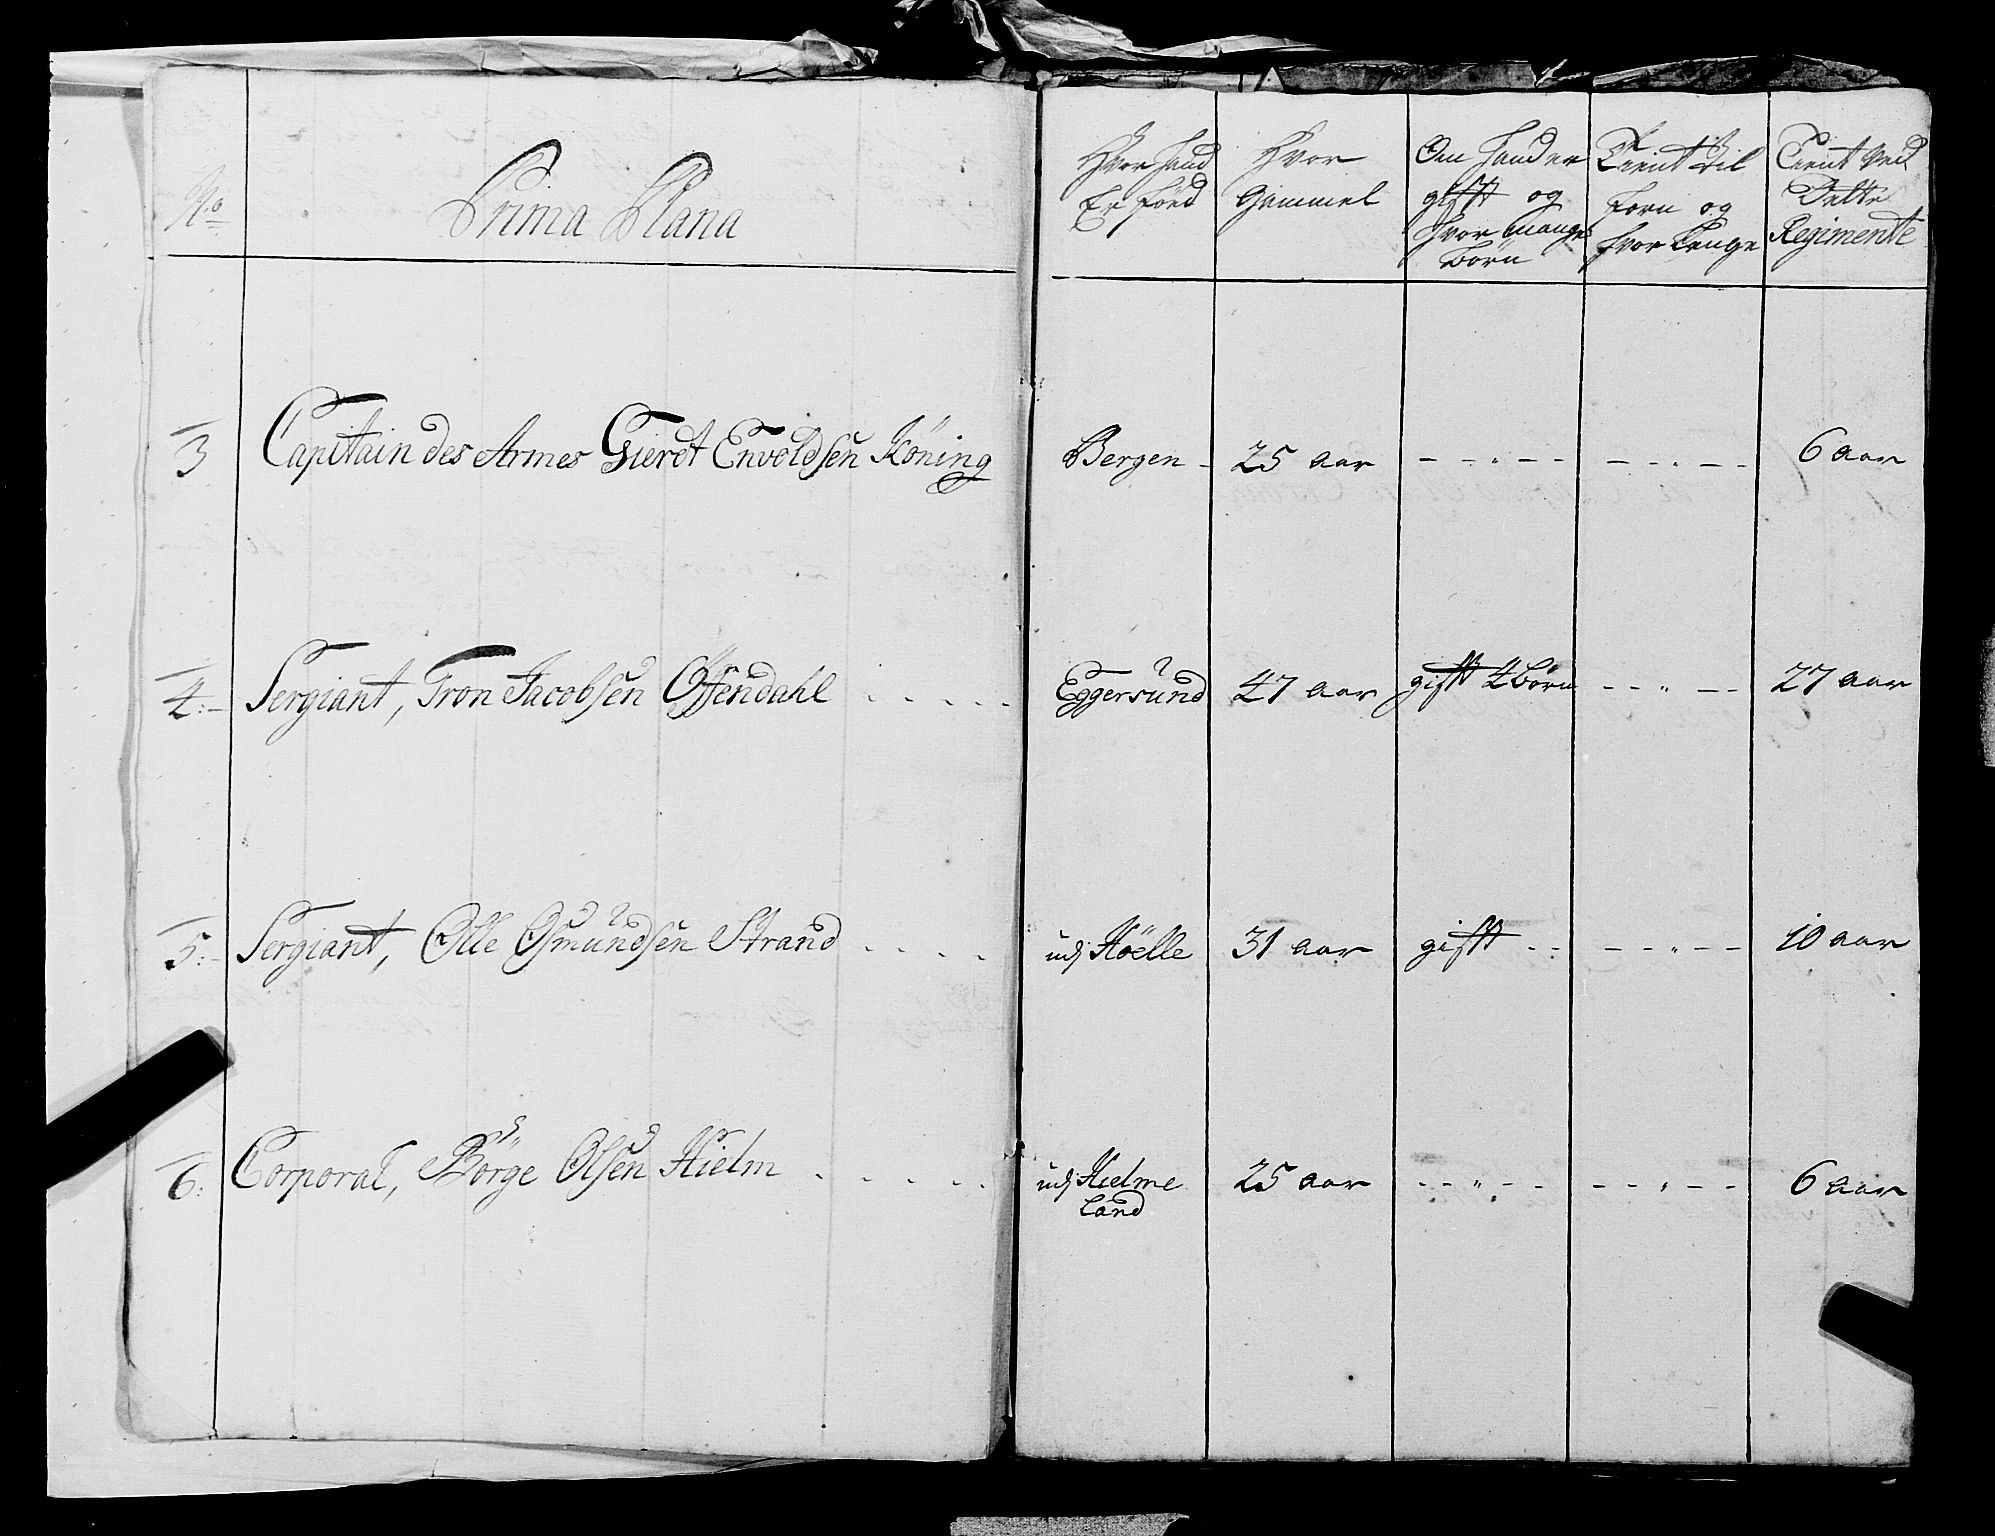 No
Prima Plana
Hvor hand
Er föed
Hvor
Gammel
Om hand er
gifft og
hvor mange
börn
Tient til
forn og
hvor Lenge
Tient ved
Dette
Regimente
3 Capitain des Armes Gierdt Envoldsen Köning Bergen - 25 aar - - " - - - - " - - 6 aar
4:- Sergiant, Tron Jacobsen Ößendahl - - - - - Eggersund 47 aar gifft 4 börn - - " - - 27 aar
5:- Sergiant, Olle Osmundsen Strand - - - - udj Höelle 31 aar gifft - - - - " - - 10 aar
6: Corporal, Börge Olsen Hielm - - - - - udj Hielme 25 aar - - " - - - - " - - 6 aar
land